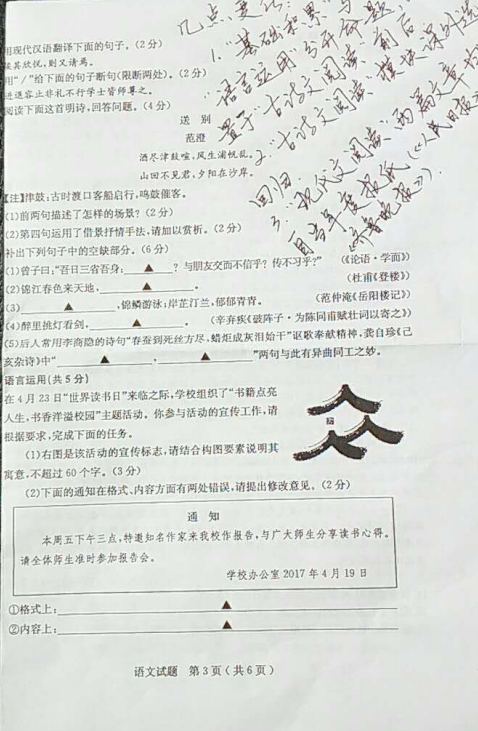 几点变化：
1.“基础积累”与
“语言运用”分开命题，
置于“古诗文阅读”前后
2.“古诗文阅读”模块课外选
两篇文章均
回归
3.现代文阅读
自当年度报纸《人民日报》
《齐鲁晚报》）.
用现代汉语翻译下面的句子。(2分)
俟其欣悦,则又请焉。
用“/”给下面的句子断句(限断两处)。(2分)
进退容止非礼不行学士皆师尊之。
阅读下面这首明诗,回答问题。(4分)
送 别
范澄
酒尽津鼓喧,风生浦恍乱。
山回不见君,夕阳在沙岸。
【注】津鼓:古时渡口客船启行,鸣鼓催客。
(1)前两句描述了怎样的场景?(2分)
(2)第四句运用了借景抒情手法,请加以赏析。(2分)
补出下列句子中的空缺部分。(6分)
(1)曾子曰:“吾日三省吾身:▲?与朋友交而不信乎?传不习乎?” (《论语·学而》)
(2)锦江春色来天地,▲。 (杜甫《登楼》)
(3)▲,锦鳞游泳;岸芷汀兰,郁郁青青。 (范仲淹《岳阳楼记》)
(4)醉里挑灯看剑,▲。 (辛弃疾《破阵子·为陈同甫赋壮词以寄之》)
(5)后人常用李商隐的诗句“春蚕到死丝方尽,蜡炬成灰泪始干”讴歌奉献精神,龚自珍《己
亥杂诗》中“▲,▲”两句与此有异曲同工之妙。
语言运用(共5分)
在4月23日“世界读书日”来临之际,学校组织了“书籍点亮
人生,书香洋溢校园”主题活动。你参与活动的宣传工作,请
根据要求,完成下面的任务。
(1)右图是该活动的宣传标志,请结合构图要素说明其
寓意,不超过60个字。(3分)
(2)下面的通知在格式、内容方面有两处错误,请提出修改意见。(2分)
通 知
本周五下午三点,特邀知名作家来我校作报告,与广大师生分享读书心得。
请全体师生准时参加报告会。
学校办公室 2017年4月19日
①格式上:▲
②内容上:▲
语文试题 第3页(共6页)